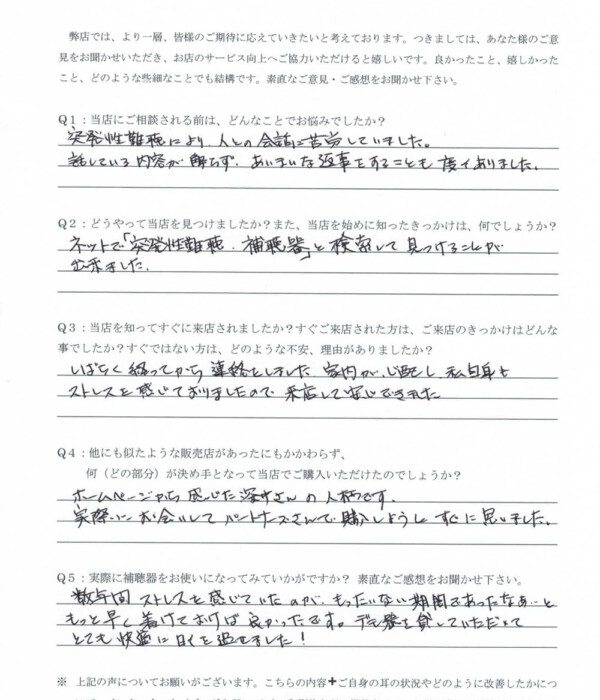 弊店では、より一層、皆様のご期待に応えていきたいと考えております。つきましては、あなた様のご意
見をお聞かせいただき、お店のサービス向上へご協力いただけると嬉しいです。良かったこと、嬉しかった
こと、どのような些細なことでも結構です。素直なご意見・ご感想をお聞かせ下さい。
Q1：当店にご相談される前は、どんなことでお悩みでしたか？
突発性難聴により 人との会話に苦労していました。
話している内容が解らず、あいまいな返事をすることも度々ありました。
Q2：どうやって当店を見つけましたか？また、当店を始めに知ったきっかけは、何でしょうか？
ネットで「突発性難聴・補聴器」と検索して見つけることが
出来ました。
Q3：当店を知ってすぐに来店されましたか？すぐご来店された方は、ご来店のきっかけはどんな
事でしたか？すぐではない方は、どのような不安、理由がありましたか？
しばらく経ってから連絡をしました 家内が心配し 私自身も
ストレスを感じておりましたので 来店して安心できました
Q4：他にも似たような販売店があったにもかかわらず、
何（どの部分）が決め手となって当店でご購入いただけたのでしょうか？
ホームページから感じた深井さんの人柄です。
実際にお会いして パートナーズさんで購入しようと すぐに思いました。
Q5：実際に補聴器をお使いになってみていかがですか？ 素直なご感想をお聞かせ下さい。
数年間 ストレスを感じていたのが、もったいない期間であったなぁーと
もっと早く着けておけば良かったです。デモ器を貸していただいて
とても快適に日々を過せました！
※ 上記の声についてお願いがございます。こちらの内容＋ご自身の耳の状況やどのように改善したかにつ